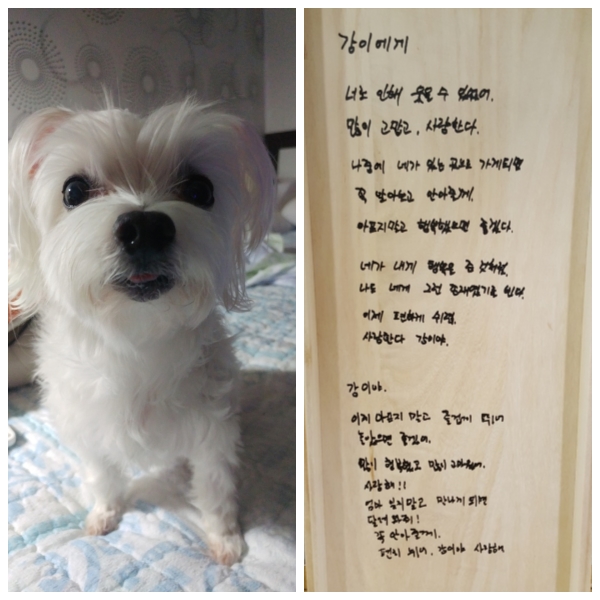 강이에게
너로 인해 웃을 수 있었어.
많이 고맙고, 사랑한다.
나중에 네가 있는 곳으로 가게되면
꼭 알아보고 안아줄게.
아프지말고 행복했으면 좋겠다.
네가 내게 행복을 준 것처럼,
나도 네게 그런 존재였기를 빈다.
이제 편하게 쉬렴.
사랑한다 강이야.
강이야.
이제 아프지 말고 즐겁게 뛰어
놀았으면 좋겠어.
많이 행복했고 많이 고마웠어.
사랑해!!
엄마 잊지말고 만나게 되면
달려 와줘!
꼭 안아줄게.
편히 쉬어. 강이야 사랑해